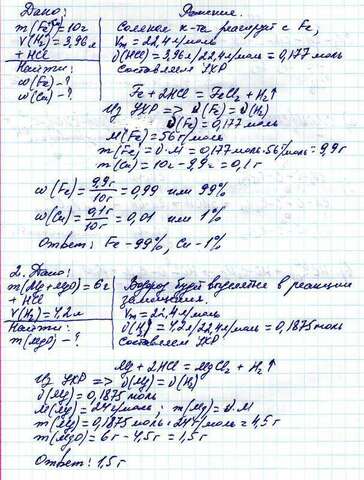 Дано:
Решение.
m(Fe, Cu) = 10г
V(H₂) = 3,96л
+ HCl
Найти:
ω(Fe) - ?
ω(Cu) - ?
Соляная к-та реагирует с Fe,
Vm = 22,4л/моль
ν(H₂) = 3,96л/22,4л/моль = 0,177моль
Составляем УХР
Fe + 2HCl = FeCl₂ + H₂↑
Из УХР => ν(Fe) = ν(H₂)
ν(Fe) = 0,177моль
M(Fe) = 56г/моль
m(Fe) = ν·M = 0,177моль·56г/моль = 9,9г
m(Cu) = 10г - 9,9г = 0,1г
ω(Fe) = 9,9г/10г = 0,99 или 99%
ω(Cu) = 0,1г/10г = 0,01 или 1%
Ответ: Fe - 99%, Cu - 1%
2. Дано:
m(Mg+MgO) = 6г
+ HCl
V(H₂) = 4,2л
Найти:
m(MgO) - ?
Водород будет выделяться в реакции
замещения.
Vm = 22,4л/моль
ν(H₂) = 4,2л/22,4л/моль = 0,1875моль
Составляем УХР
Mg + 2HCl = MgCl₂ + H₂↑
Из УХР => ν(Mg) = ν(H₂)
ν(Mg) = 0,1875моль
M(Mg) = 24г/моль; m(Mg) = ν·M
m(Mg) = 0,1875моль·24г/моль = 4,5г
m(MgO) = 6г - 4,5г = 1,5г
Ответ: 1,5г